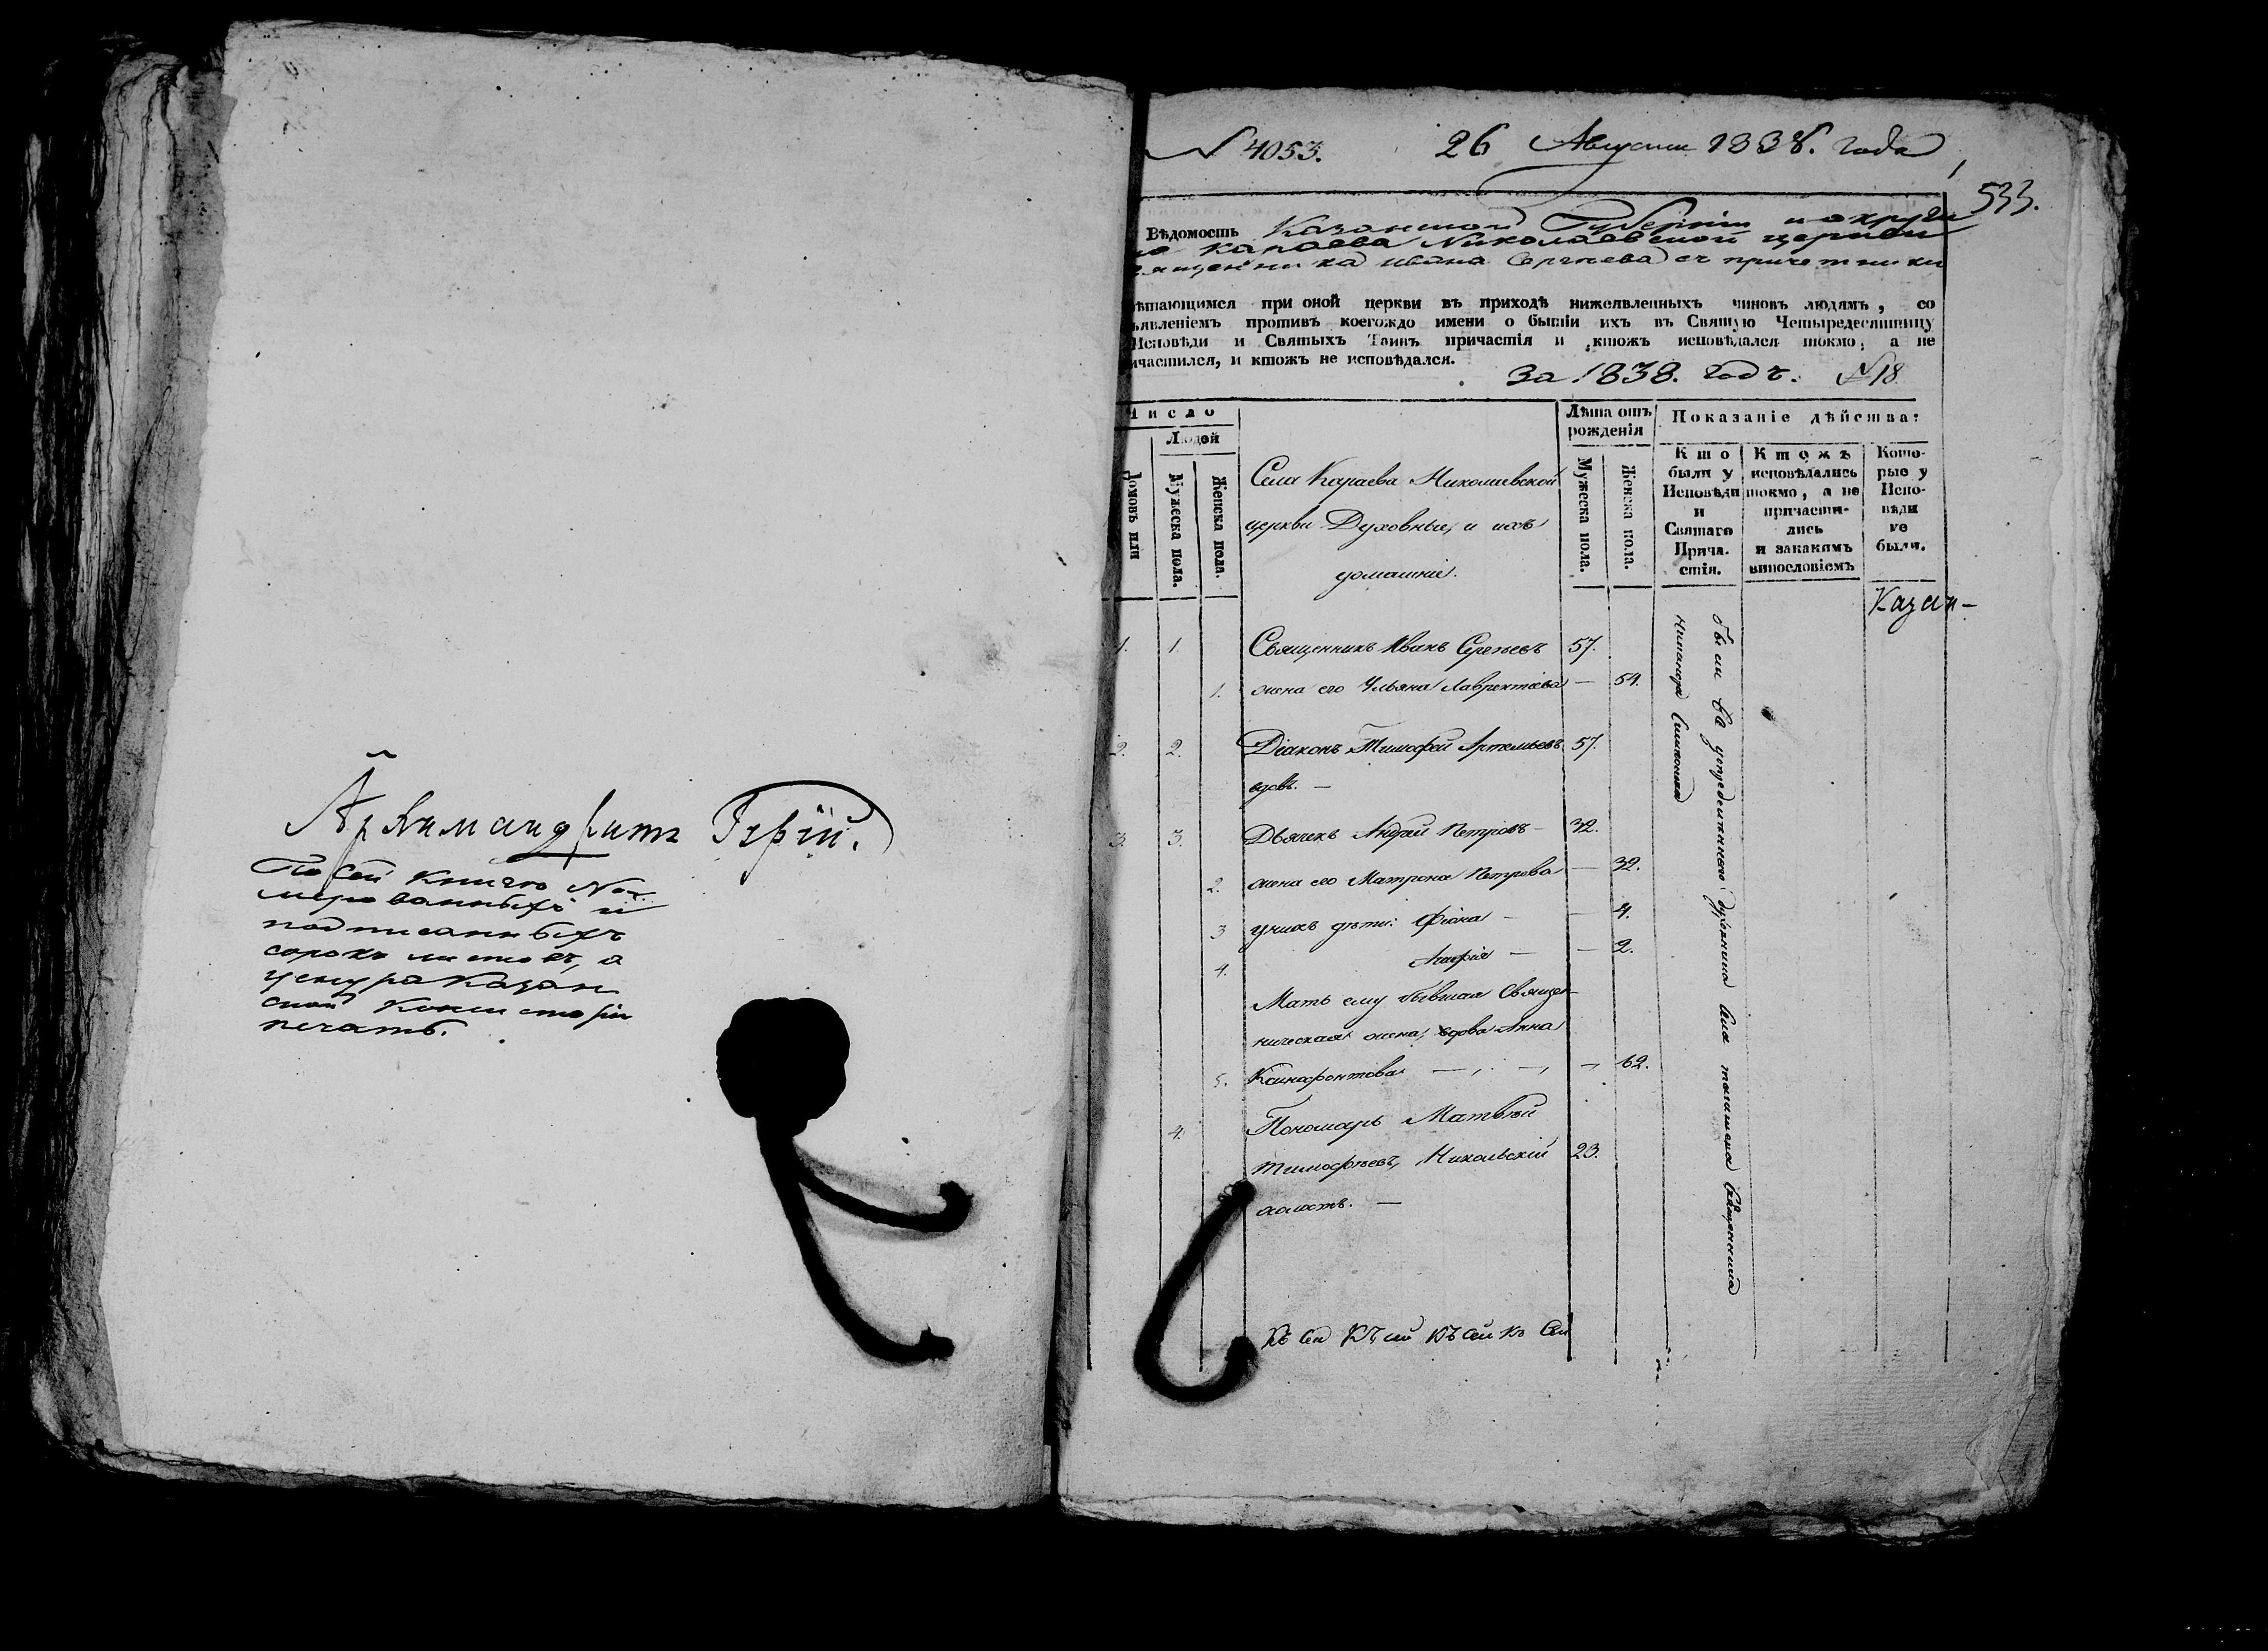 Архимандритъ Гурій.
По сей книгѣ Но-
мерованныхъ и
подписанныхъ
сорокъ листовъ, а
у снура Казан
ской Консисторіи
печать.
№ 4053. 26 Августа 1838. года
533.
Вѣдомость Казанской Губерніи и округи
Караева Николаевской церкви
Ивана Сергѣева съ причетники
при оной церкви въ приходѣ нижеявленныхъ чиновъ людямъ, со
ъявленіемъ противъ коегождо имени о бытіи ихъ въ Святую Четыредесятницу
Исповѣди и Святыхъ Таинъ причастія и ктожъ исповѣдался токмо, а не
ичастился, и ктожъ не исповѣдался.
за 1838. Годъ. №18
Число
Людей
Домовъ или
Мужеска пола.
Женска пола.
Села Караева Николаевской
церкви Духовные, и ихъ
домашніе.
Лѣта отъ рожденія
Мужеска пола.
Женска пола.
Показаніе дѣйства:
Кто были у Исповѣди и Святаго Прича- стія.
Ктожъ исповѣдались токмо, а не причасти- лись и закакимъ винословіемъ
Кото- рые у Испо- вѣди не были.
Казан-
1. 1. Священникъ Иванъ Сергѣевъ 57.
1. жена его Ульяна Лаврентіева — 54.
2. 2. Діаконъ Тимофей Артемьевъ 57.
вдовъ. —
3. 3. Дьячекъ Андрей Петровъ — 32.
2. жена его Матрона Петрова — 32.
3 унихъ дѣти: Фіона — — 4.
4. — — 2.
Мать ему бывшая Священ-
ническая жена, вдова Анна
5. Ксинофонтова — 62.
4. Пономарь Матвѣй
Тимофѣевъ, Никольскій 23.
холостъ. —
Были
духовника Села священника
Къ Сей Къ сей Къ сей Къ Сей